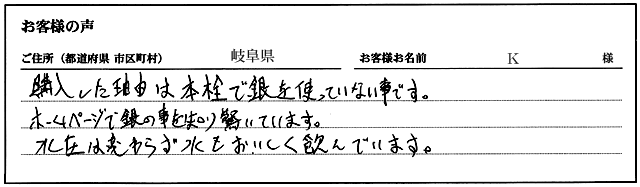 お客様の声
ご住所（都道府県 市区町村） 岐阜県 お客様お名前 K 様
購入した理由は本栓で銀を使っていない事です。
ホームページで銀の事を知り驚いています。
水圧は変わらず水をおいしく飲んでいます。